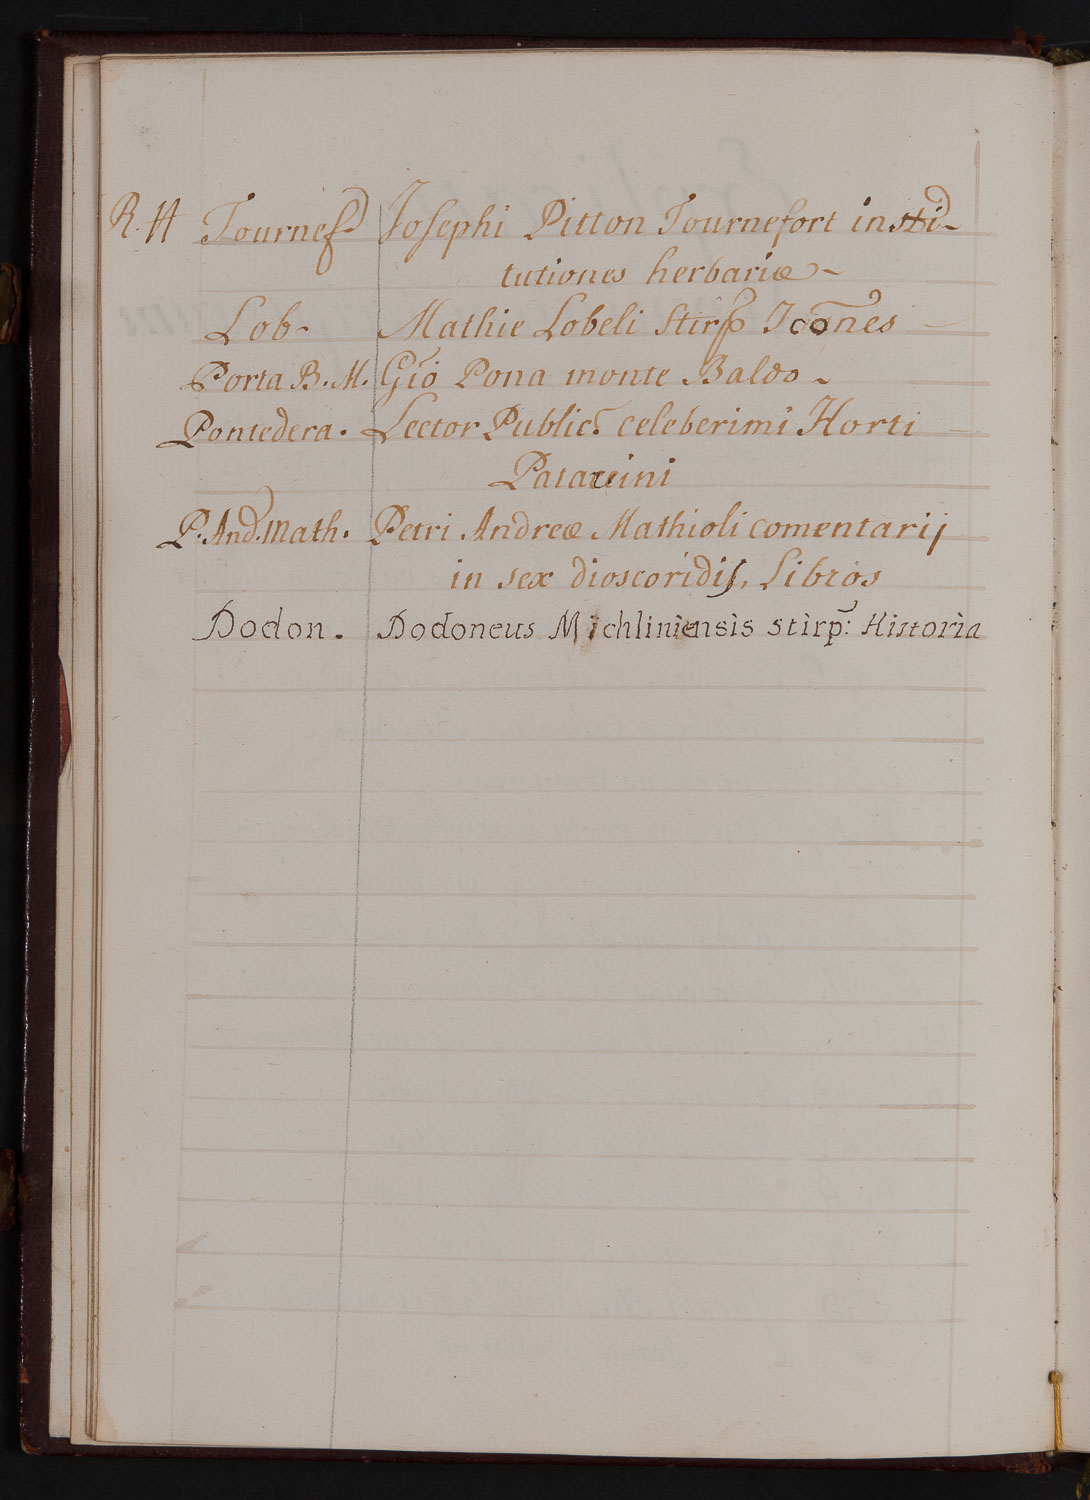 R. H Tournef. Josephi Pitton Tournefort insti-
tutiones herbariæ -
Lob. Mathie Lobeli Stirp Icones
Porta B. M. Gio Pona monte Baldo -
Pontedera. Lector Public. celeberimi Horti
Patavini
P. And. Math. Petri Andreæ Mathioli comentarij
in sex dioscoridis, Libros
Dodon. Dodoneus Michliniensis stirp: Historia